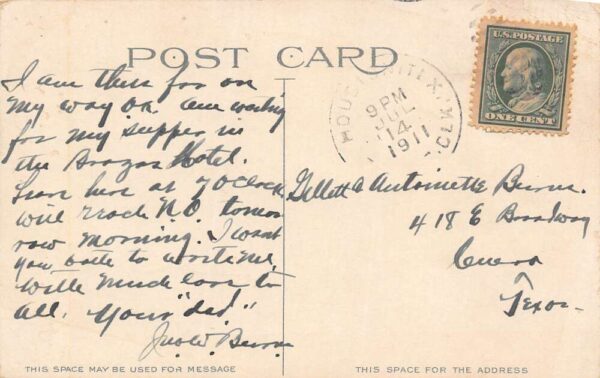 POST CARD
U.S. POSTAGE
ONE CENT
HOUSTON, TEX.
9 PM
JUL
14
1911
I am thus far on
my way OK am waiting
for my supper in
the Brazos Hotel.
Leave here at 7 Oclock
will reach N.O. tomor
row morning. I want
you both to write me.
with much love to
all. Your "dad"
Jno W. Burns
Gillett & Antoinette Burns.
418 E Broadway
Cuero
Texas
THIS SPACE MAY BE USED FOR MESSAGE
THIS SPACE FOR THE ADDRESS